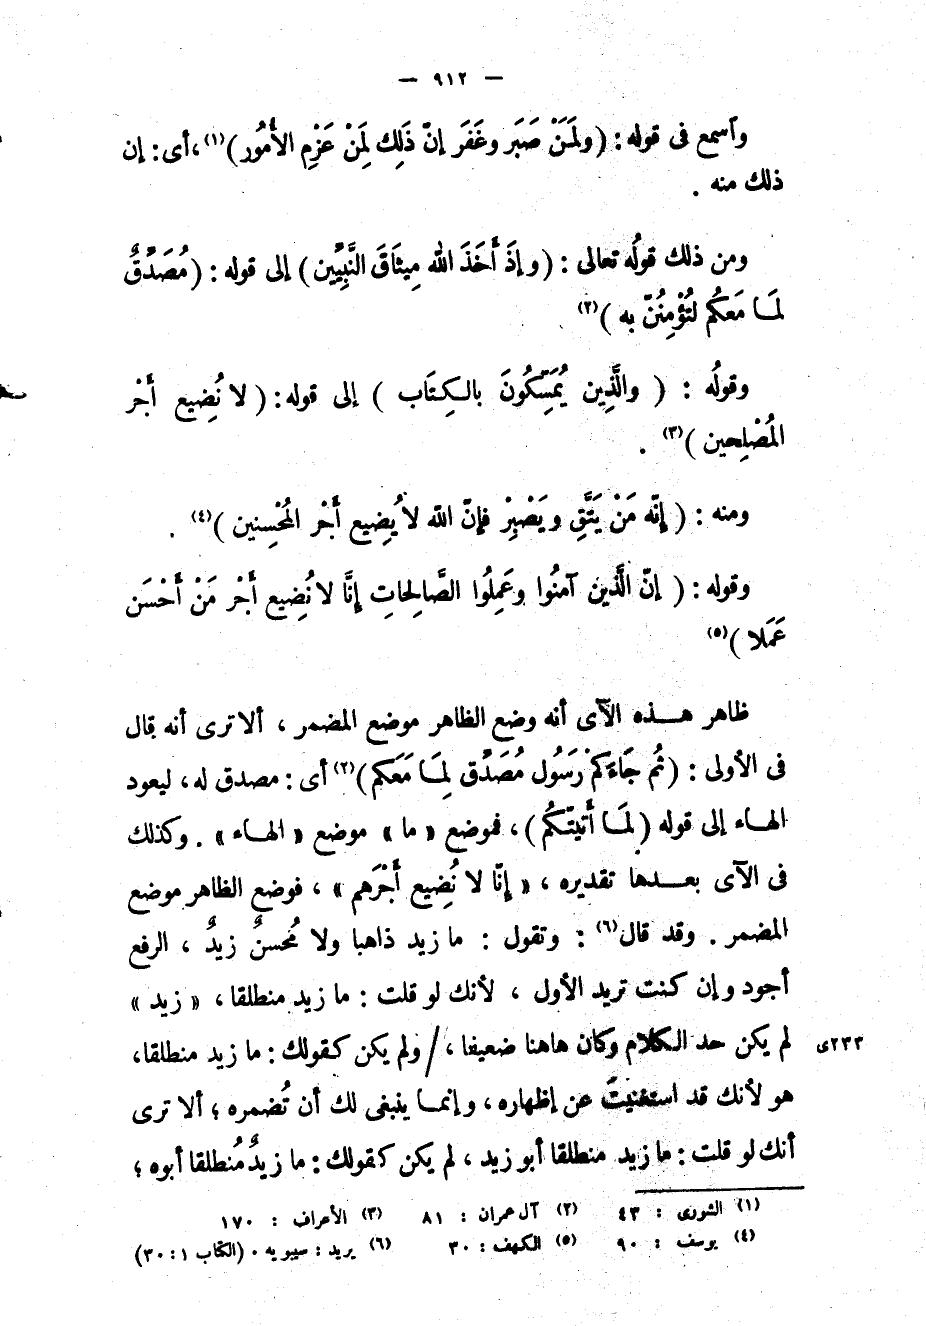 — ٩١٢ —
وٱسمع فى قوله : (ولَمَنْ صَبَر وغَفَر إنّ ذَلِك لَمِنْ عَزْمِ الأُمُور)(١)، أى : إن
ذلك منه .
ومن ذلك قولُه تعالى : (وإذَ أَخَذَ الله مِيثَاقَ النَّبِيِّين) إلى قوله : (مُصَدِّقٌ
لمَـا مَعَكُم لتُؤْمِنُنّ به )(٢)
وقولُه : ( والَّذِين يُمَسِّكُونَ بالـكِتَاب ) إلى قوله : ( لا نُضِيع أَجْر
المُصْلِحين )(٣) .
ومنه : ( إنّه مَنْ يَتَّقِ ويَصْبِرْ فإنّ الله لا يُضِيع أَجْر المُحْسِنين )(٤) .
وقوله : ( إنّ الَّذين آمنُوا وعَمِلُوا الصَّالِحاتِ إنَّا لا نُضِيع أَجْر مَنْ أَحْسَن
عَمَلا )(٥)
ظاهر هـذه الآى أنه وضع الظاهر موضع المضمر ، ألا ترى أنه قال
فى الأولى : (ثُم جَاءَكمْ رَسَوُل مُصَدِّق لِمَـا مَعَكم)(٢) أى : مصدق له، ليعود
الهـاء إلى قوله (لمَـا أَتيتـكُم)، فموضع « ما » موضع « الهـاء » . وكذلك
فى الآى بعـدها تقديره ، « إنّا لا نُضِيع أَجْرَهم » ، فوضع الظاهر موضع
المضمر . وقد قال(٦) : وتقول : ما زيد ذاهبا ولا مُحسنٌ زيدٌ ، الرفع
أجود وإن كنت تريد الأول ، لأنك لو قلت : ما زيد منطلقا ، « زيد »
لم يكن حد الـكلام وكان هاهنا ضعيفا ، / ولم يكن كقولك : ما زيد منطلقا، ٢٣٣ى
هو لأنك قد استغنيتَ عن إظهاره ، وإنمـا ينبغى لك أن تُضمره ؛ ألا ترى
أنك لو قلت : ما زيد منطلقا أبو زيد ، لم يكن كقولك : ما زيدٌ مُنطلقا أبوه ؛
(١) الشورى : ٤٣ (٢) آل عمران : ٨١ (٣) الأعراف : ١٧٠
(٤) يوسف : ٩٠ (٥) الكهف : ٣٠ (٦) يريد : سيبويه . (الكتاب ١ : ٣٠)